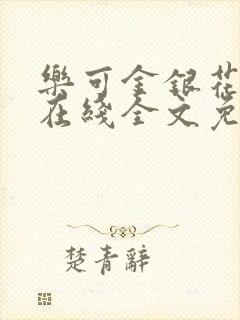 樂可金銀花
在綫全文免
楚青辭